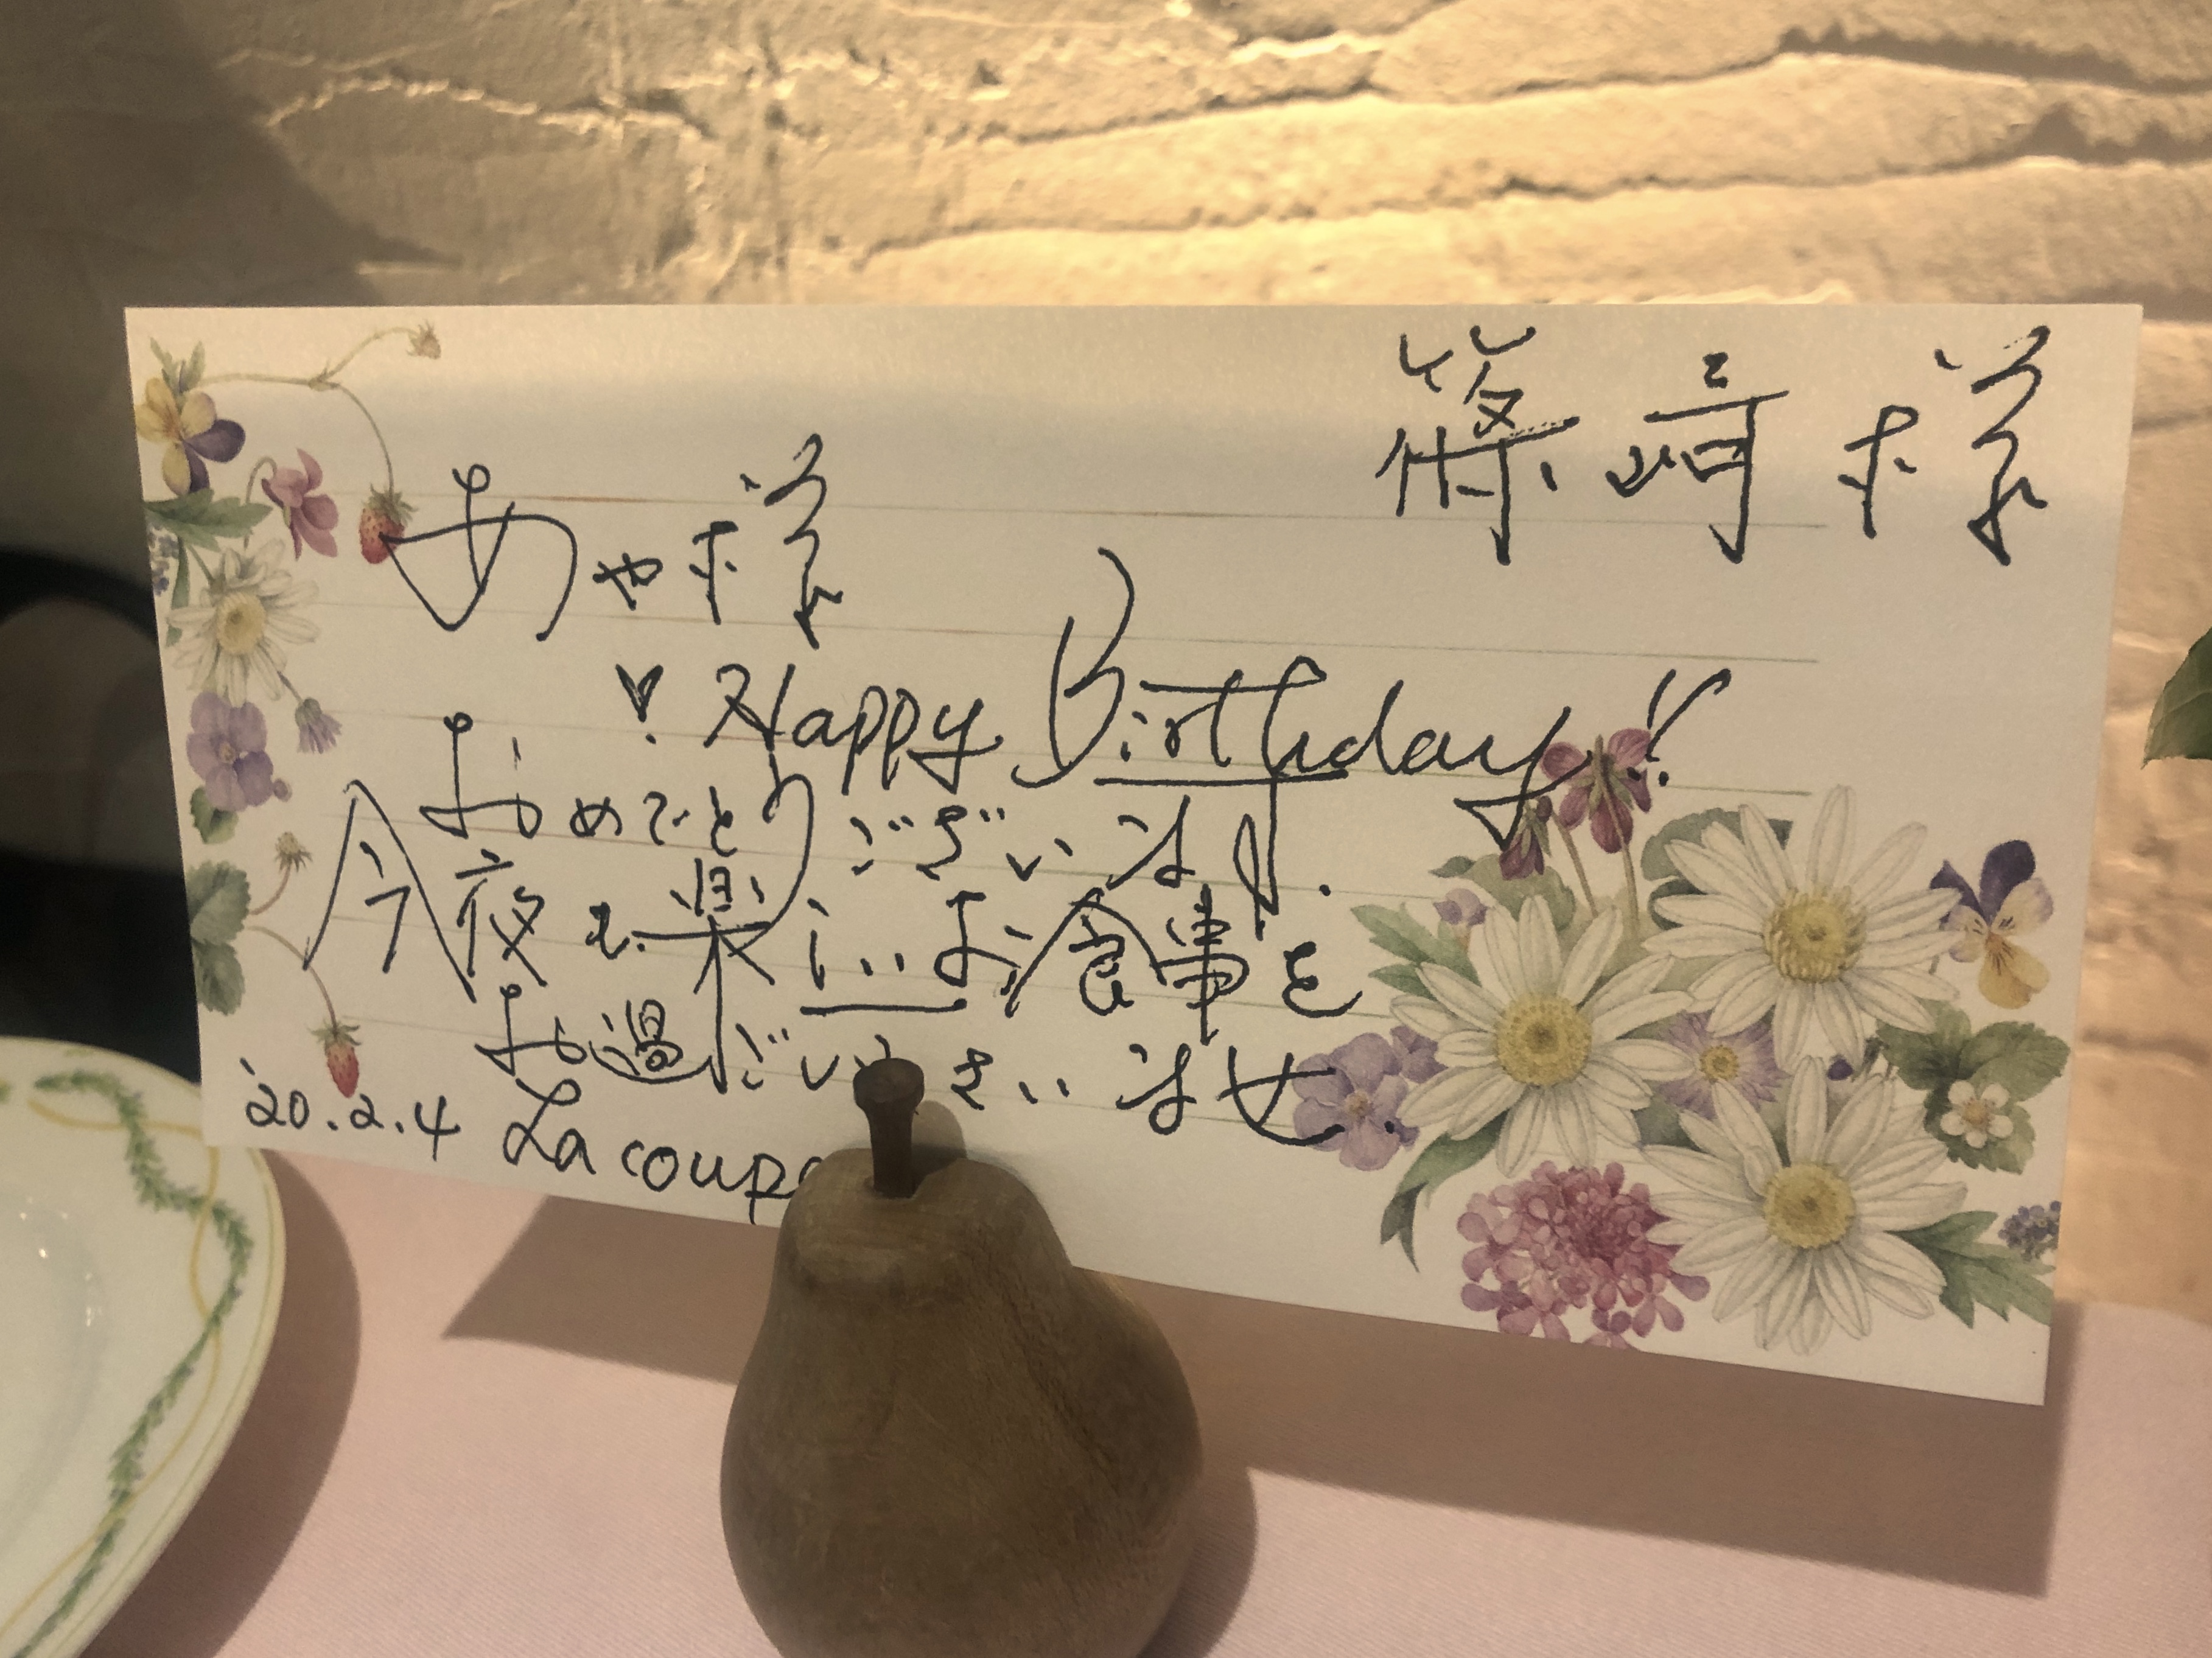 篠崎様
あや様
♥ Happy Birthday!!
おめでとうございます.
今夜も楽しいお食事を
お過ごし さいませ.
'20.2.4 La coup